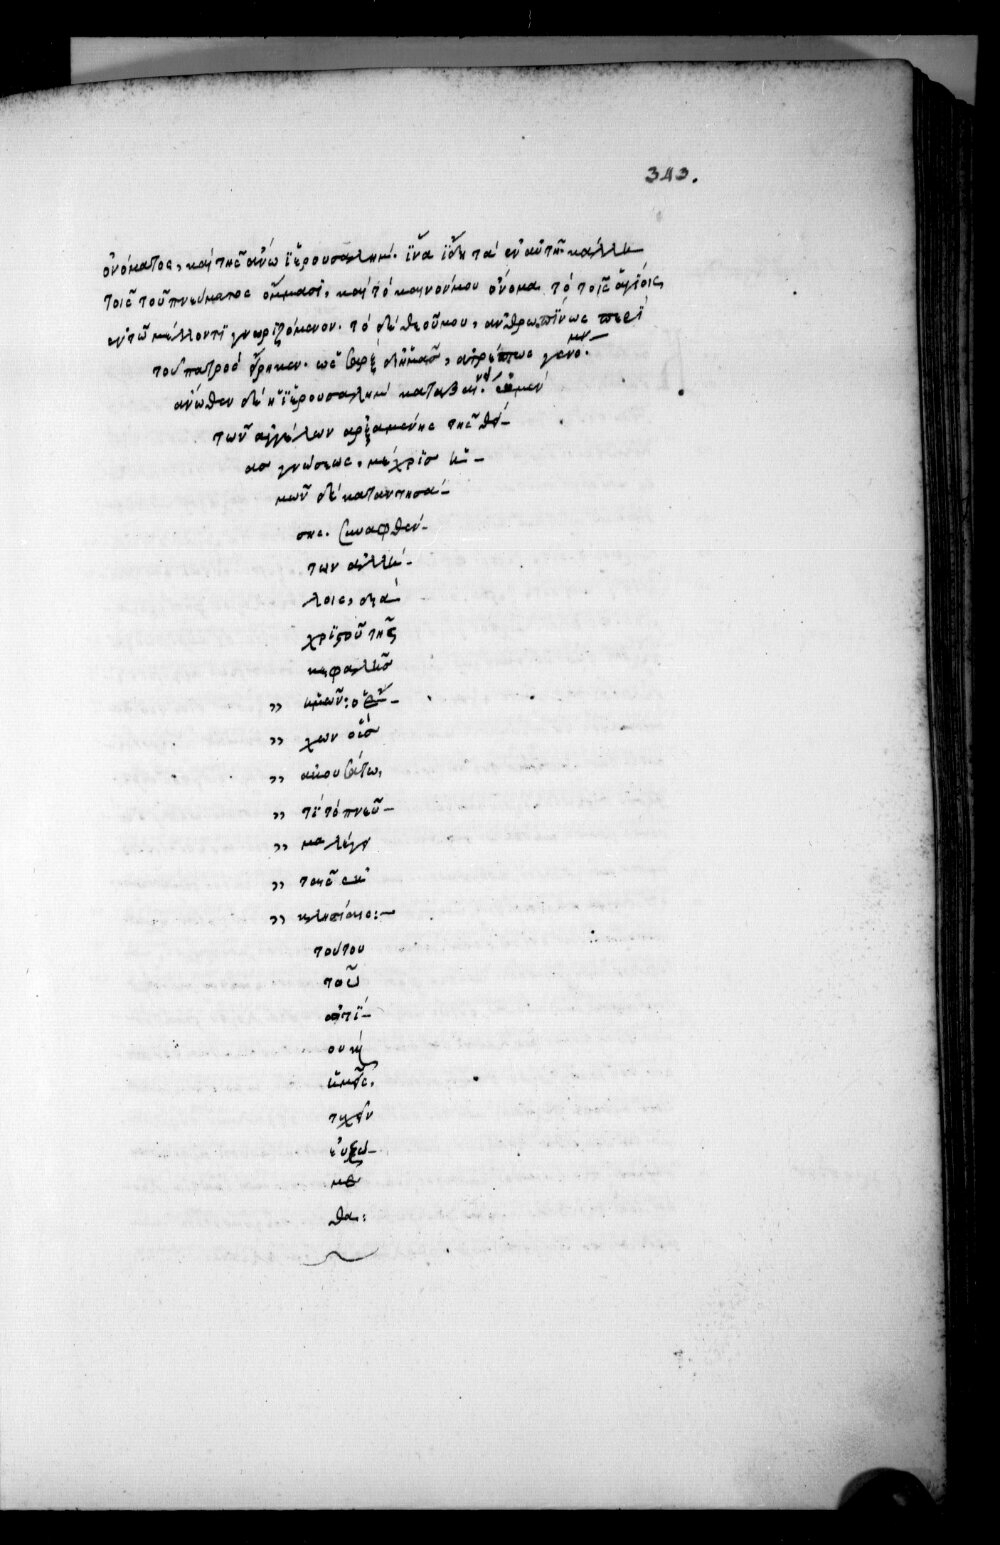 343.
ὀνόματος, καὶ τῆς ἄνω ἱερουσαλήμ. ἵνα ἴδη τὰ ἐν αὐτῆ κάλλη
τοῖς τοῦ πνεύματος ὄμμασι, καὶ τὸ καινόν μου ὄνομα τὸ τοῖς ἁγίοις
ἐν τῶ μέλλοντι γνωριζόμενον. τὸ δὲ θεοῦ μου, ἀνθρωπίνως περὶ
τοῦ πατρὸς εἴρηκεν. ὡς σὰρξ δι' ἡμᾶς, ἀτρέπτως γενόμεν.
ἄνωθεν δὲ ἡ ἱερουσαλὴμ καταβαίν. ἐκ μὲν
τῶν ἀγγέλων ἀρξαμένης τῆς θεί-
ας γνώσεως, μέχρις ἡ-
μῶν δὲ καταντησά-
σης. συναφθέν-
των ἀλλή-
λοις, διὰ
χριστοῦ τῆς
κεφαλῆς
" ἡμῶν: ὁ ἔ-
" χων οὖς
" ἀκουσάτω,
" τί τὸ πνεῦ-
" μα λέγει
" ταῖς ἐκ
" κλησίαις:—
τούτου
τοῦ
ἁγί-
ου καὶ
ἡμᾶς,
τυχεῖν
εὐξώ-
με
θα: